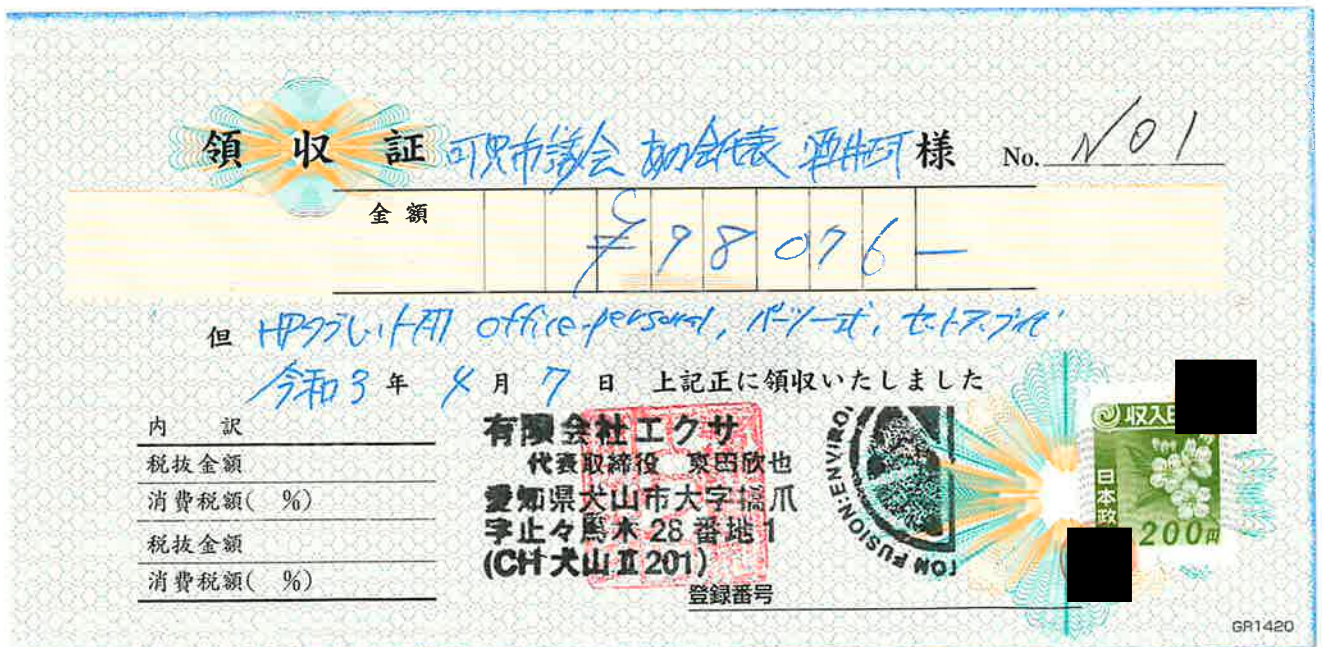 領収証 可児市議会 あの会代表 酒井正司 様 No. N01
金額 ¥98076-
但 HPタブレット用 office-personal, パーツ一式, セットアップ代
令和3年 4月 7日 上記正に領収いたしました
内 訳
税抜金額
消費税額( %)
税抜金額
消費税額( %)
有限会社エクサ
代表取締役 東田欣也
愛知県犬山市大字橋爪
字止々馬木28番地1
(CH犬山Ⅱ201)
登録番号
ION FUSION:ENVIRO
収入
日本政
200円
GR1420